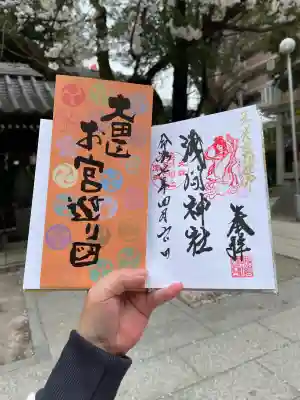 大田区
お宮巡り図
奉拝
浅間神社
令和七年四月六日